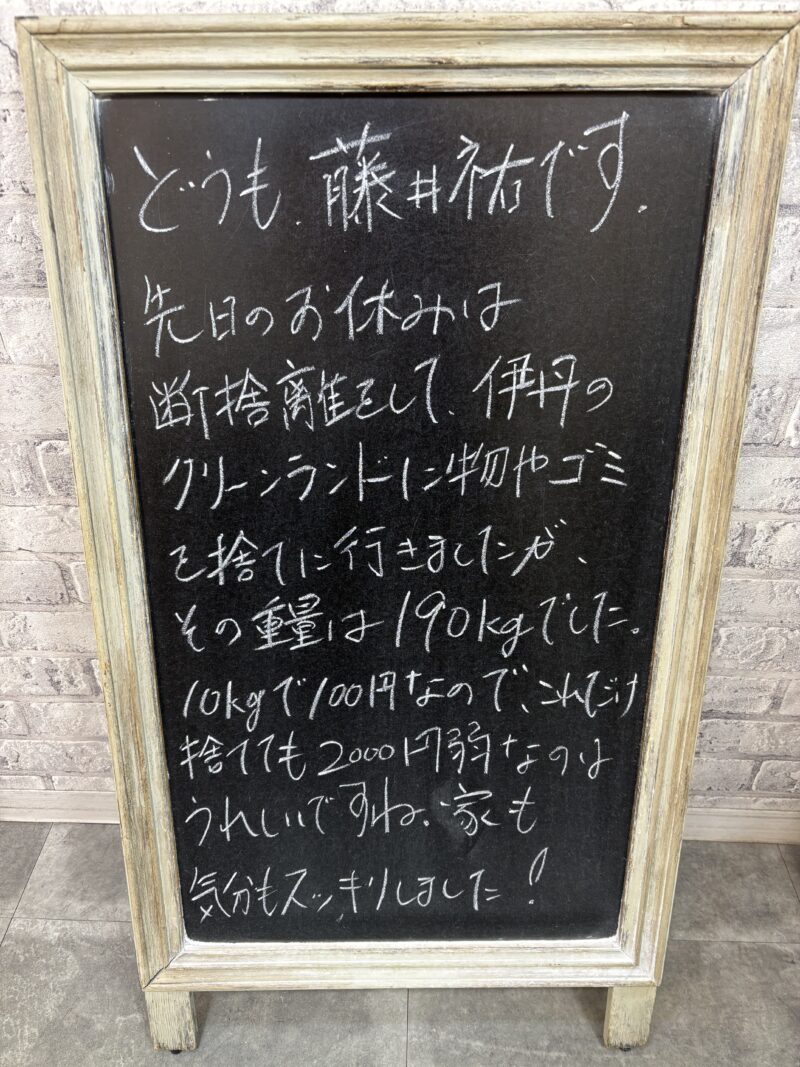 どうも、藤井祐です。
先日のお休みは
断捨離をして、伊丹の
クリーンランドに物やゴミ
を捨てに行きましたが、
その重量は190kgでした。
10kgで100円なので、これだけ
捨てても2000円弱なのは
うれしいですね、家も
気分もスッキリしました!